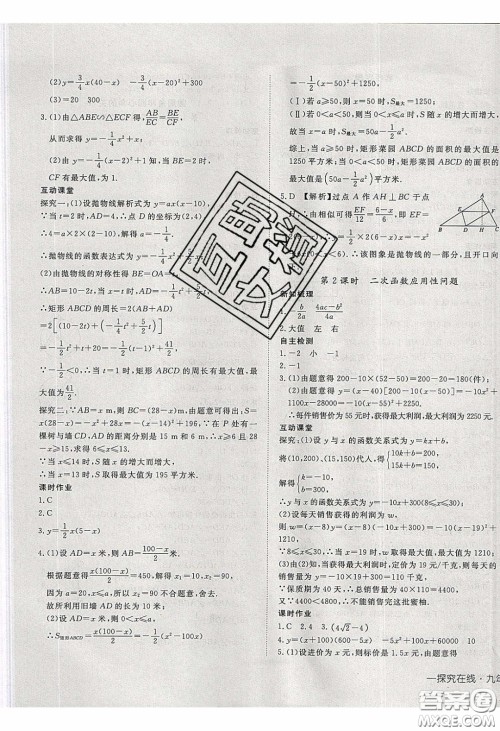 (2)y=3/4 x(40-x) -3/4(x-20)²+300
(3)20 300
3.(1)由△ABE∽△ECF得,AB/EC=BE/CF
从而求得y=-1/2x²+x;
(2)由y=-1/2(x-2)²+2
CF有最大值,为1.
互动课堂
探究一:(1)设抛物线解析式为y=ax(x-10),
∵当t=2时,AD=4,∴点D的坐标为(2,4).
∴4=a×2×(2-10).∴a=-1/4.
∴抛物线的函数表达式为y=-1/4
(2)由抛物线的对称性得BE=OA=t,
∴AB=10-2t.当x=t时,AD=
∴矩形ABCD的周长=2(AB+AD)
=2[(10-2t)+(-1/4t²+
∵-1/2<0,∴当t=1时,矩形ABCD的周长有最大值,最
大值为41/2.
探究二:∵AB=x m,则BC=(28-x)m,由题意可得,S=
x(28-x)=-x²+28x=-(x-14)²+196,∵在P处有一
棵树与墙CD,AD的距离分别是15 m和6 m,∴x≥6且28
-x≥15.求得6≤x≤13.
∵当x≤14时,S随x的增大而增大,
∴当x=13时,S取得最大值为195平方米.
课时作业
1.C
2.C
3.y=1/2x(5-x)
4.(1)设AD=x米,则AB=(100-x)/2米.
根据题意得x(100-x)/2=450,解得x₁=10,x₂=90.
因为a=20,x≤a,所以x=90不合题意,舍去.
故所利用旧墙AD的长为10米;
(2)设AD=x米,
∴S矩形ABCD=x(100-x)/2
=-1/2(x-50)²+1250,
(Ⅰ)若a≥50,则x=50时,S最大=1250.
(Ⅱ)若0<a<50,则当0<x≤a时,S随x的增大而增大.
故当x=a时,S最大=50a-1/2a².
综上,当a≥50时,矩形菜园ABCD的面积的最大值是
1250平方米;当0<a<50时,矩形菜园ABCD的面积的最
大值是(50a-1/2a²)平方米.
5.D 【解析】过点A作AH⊥BC于点
H,由相似可得EF/12=(6-x)/6,即EF=
2(6-x),
∴y=1/2×2(6-x)x=-x²+6x(0<x<6).∴该图象是抛物线的一部分,且开口向
第2课时 二次函数应用性问题
新知梳理
1.-b/2a (4ac-b²)/4a
2.大值 左 右
自主检测
1.-2 小 -1
2.C
3.(1)由题意得200-10×(52-50)=200-20=180(件);
(2)由题意得y=(x-40)[200-10(x-50)]=-10x²+
1100x-28000=-10(x-55)²+2250.
∴每件销售价为55元时,获得最大利润,最大利润为2250元.
互动课堂
探究:(1)设y与x的函数关系式为y=kx+b,
将(10,200),(15,150)代入得{10k+b=200, 15k+b=150,
解得{k=-10, b=300.
∴y与x的函数关系式为y=-10x+300(8≤x≤30);
(2)设每天销售获得的利润为w,
则w=(x-8)y=(x-8)(-10x+300)=-10(x-19)²+1210,
∵8≤x≤30,∴当x=19时,w取得最大值,最大值为1210;
(3)由(2)知,当获得最大利润时,定价为19元/千克,则每天的
销售量为y=-10×19+300=110千克,
∵保质期为40天,∴总销售量为40×110=4400,
又∵4400<4800,∴不能销售完这批蜜柚.
课时作业
1.C 2.4 3.(4√2-4)
4.y=(x+100)(600-5x) -5x²+100x+60000 10
5.(1)设进价为x元,则标价是1.5x元,由题意得
一探究在线·九年